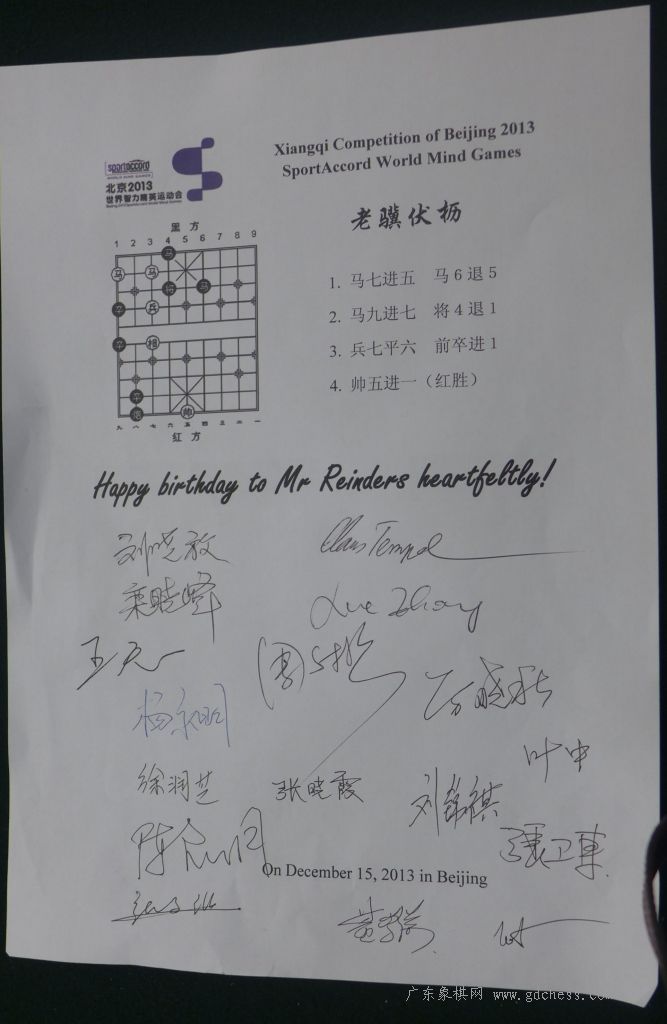 Xiangqi Competition of Beijing 2013
SportAccord World Mind Games
sportaccord
WORLD MIND GAMES
北京2013
世界智力精英运动会
老骥伏枥
黑 方
1 2 3 4 5 6 7 8 9
马
马 马
将 马
卒 兵
卒 相
卒
炮 帅
九 八 七 六 五 四 三 二 一
红 方
1. 马七进五 马6退5
2. 马九进七 将4退1
3. 兵七平六 前卒进1
4. 帅五进一（红胜）
Happy birthday to Mr Reinders heartfeltly!
刘晓放
Claus Tempel
Xue Zhong
杨
晓
叶中
徐润芝
张晓霞
刘
張卫東
陈
On December 15, 2013 in Beijing
黄
广东象棋网 www.gdchess.com